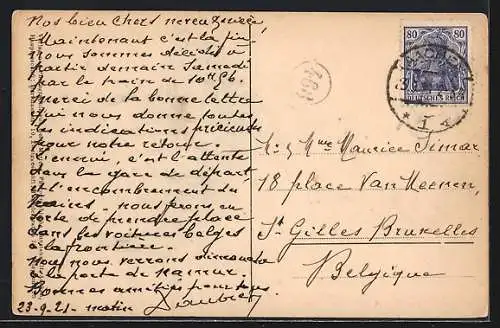 Nos bien chers neveu & nièce
Maintenant c'est la fin
nous sommes décidés à
partir demain Samedi
par le train de 10h56.
Merci de la bonne lettre
qui nous donne toutes
les indications précieuses
pour notre retour.
L'ennui, c'est l'attente
dans la gare de départ
et l'encombrement des
trains, nous ferons en
sorte de prendre place
dans les voitures belges
à la frontière.
Nous nous verrons dimanche
à la porte de Namur.
Bonnes amitiés pour tous
23-9-21- matin
80 80
DEUTSCHES REICH
* 1
Mr & Mme Maurice Simar
18 place Van Meenen,
St Gilles Bruxelles
Belgique